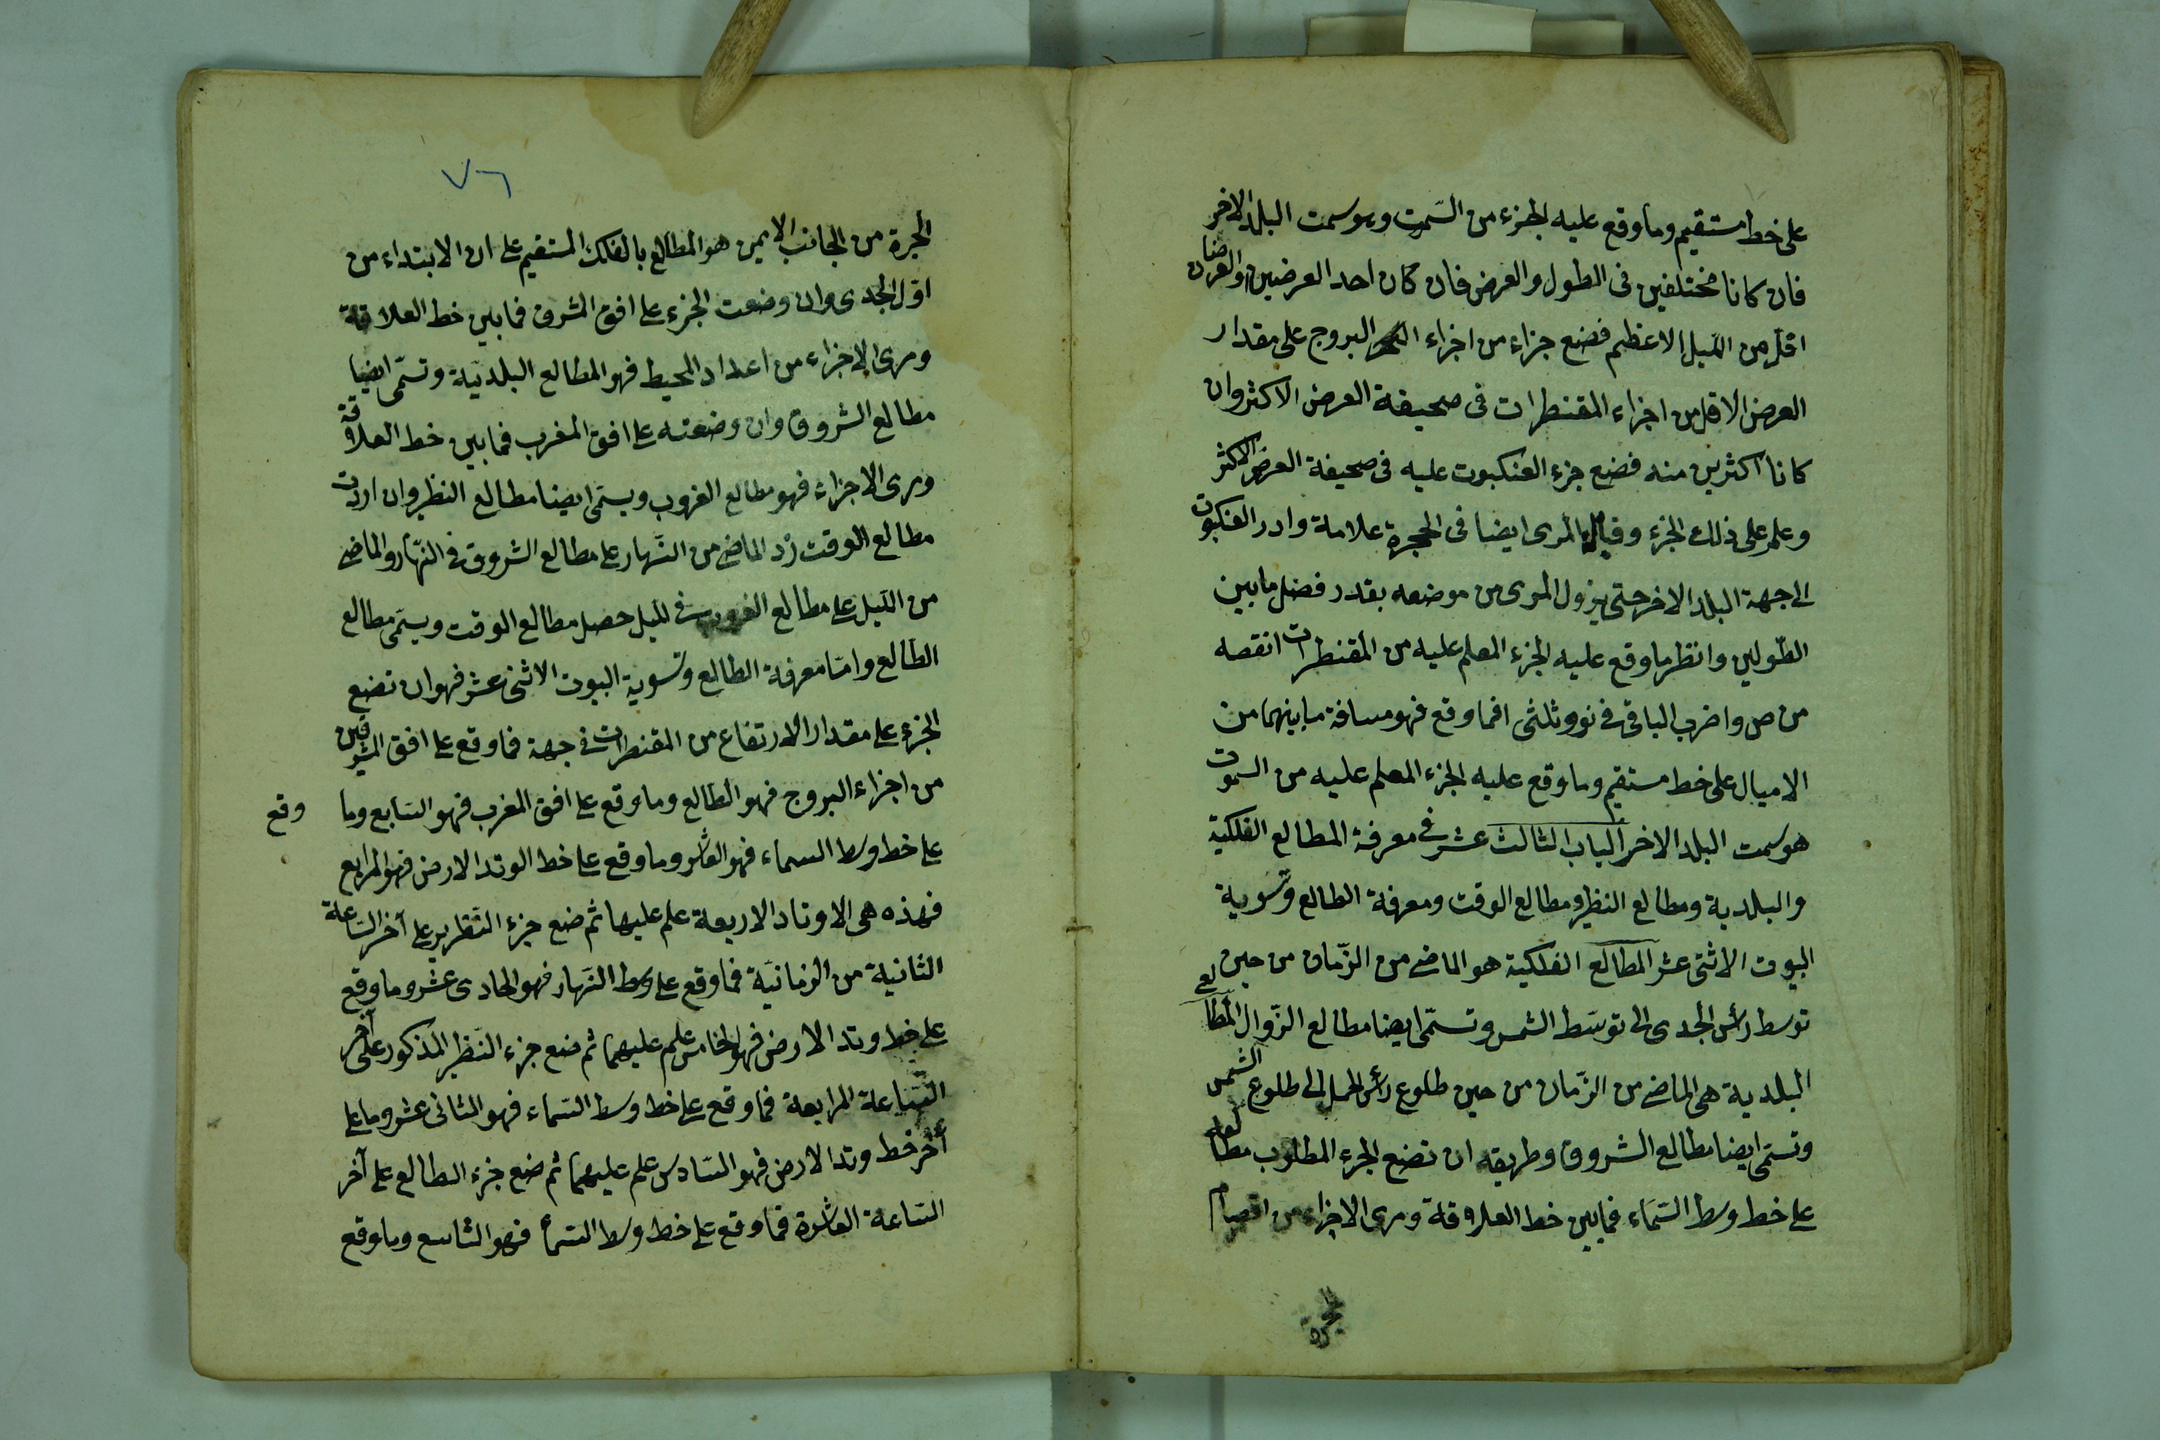 على خط مستقيم وما وقع عليه الجزء من السمت وهو سمت البلد الاخر
فان كانا مختلفين فى الطول والعرض فان كان احد العرضين او العرضان
اقل من الميل الاعظم فضع جزاء من اجزاء البروج على مقدار
العرض الاقل من اجزاء المقنطرات فى صحيفة العرض الاكثر وان
كانا اكثرين منه فضع جزء العنكبوت عليه فى صحيفة العرض الاكثر
وعلم على ذلك الجزء وقبالة المرى ايضا فى الحجرة علامة وادر العنكبوت
الى جهة البلد الاخر حتى يزول المرى من موضعه بقدر فضل ما بين
الطولين وانظر ما وقع عليه الجزء المعلم عليه من المقنطرات انقصه
من ص واضرب الباقى فى نو وثلثى فما وقع فهو مسافة ما بينهما من
الاميال على خط مستقيم وما وقع عليه الجزء المعلم عليه من السموت
هو سمت البلد الاخر الباب الثالث عشر فى معرفة المطالع الفلكية
والبلدية ومطالع النظير ومطالع الوقت ومعرفة الطالع وتسوية
البيوت الاثنى عشر المطالع الفلكية هو الماضى من الزمان من حين
توسط رأس الجدى الى توسط الشمس وتسمى ايضا مطالع الزوال المطالع
البلدية هى الماضى من الزمان من حين طلوع رأس الحمل الى طلوع الشمس
وتسمى ايضا مطالع الشروق وطريقه ان تضع الجزء المطلوب مطالعه
على خط وسط السماء فما بين خط العلاقة ومرى الاجزاء من اقسام
الحجرة
٧٦
الحجرة من الجانب الايمن هو المطالع بالفلك المستقيم على ان الابتداء من
اول الجدى وان وضعت الجزء على افق المشرق فما بين خط العلاقة
ومرى الاجزاء من اعداد المحيط فهو المطالع البلدية وتسمى ايضا
مطالع الشروق وان وضعته على افق المغرب فما بين خط العلاقة
ومرى الاجزاء فهو مطالع الغروب ويسمى ايضا مطالع النظير وان اردت
مطالع الوقت زد الماضى من النهار على مطالع الشروق فى النهار والماضى
من الليل على مطالع الغروب فى الليل حصل مطالع الوقت ويسمى مطالع
الطالع واما معرفة الطالع وتسوية البيوت الاثنى عشر فهو ان تضع
الجزء على مقدار الارتفاع من المقنطرات فى جهة فما وقع على افق المشرق من
من اجزاء البروج فهو الطالع وما وقع على افق المغرب فهو السابع وما وقع
على خط وسط السماء فهو العاشر وما وقع على خط الوتد الارض فهو الرابع
فهذه هى الاوتاد الاربعة علم عليها ثم ضع جزء النظير على آخر الساعة
الثانية من الزمانية فما وقع على وسط النهار فهو الحادى عشر وما وقع
على خط وتد الارض فهو الخامس علم عليهما ثم ضع جزء النظير المذكور على آخر
الساعة الرابعة فما وقع على خط وسط السماء فهو الثانى عشر وما على
آخر خط وتد الارض فهو السادس علم عليهما ثم ضع جزء الطالع على آخر
الساعة العاشرة فما وقع على خط وسط السمأ فهو التاسع وما وقع